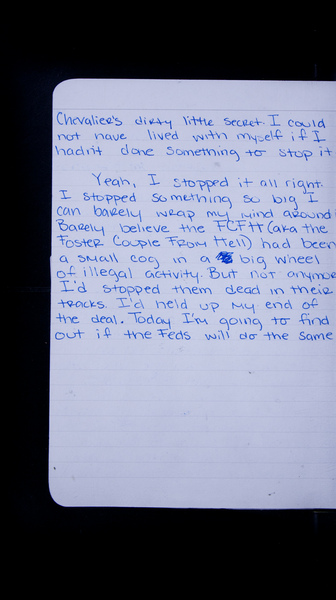 Chevalier's dirty little secret. I could
not have lived with myself if I
hadn't done something to stop it
Yeah, I stopped it all right.
I stopped something so big I
can barely wrap my mind around
Barely believe the FCFH (aka the
Foster Couple From Hell) had been
a small cog in a big wheel
of illegal activity. But not anymore
I'd stopped them dead in their
tracks. I'd held up my end of
the deal. Today I'm going to find
out if the Feds will do the same